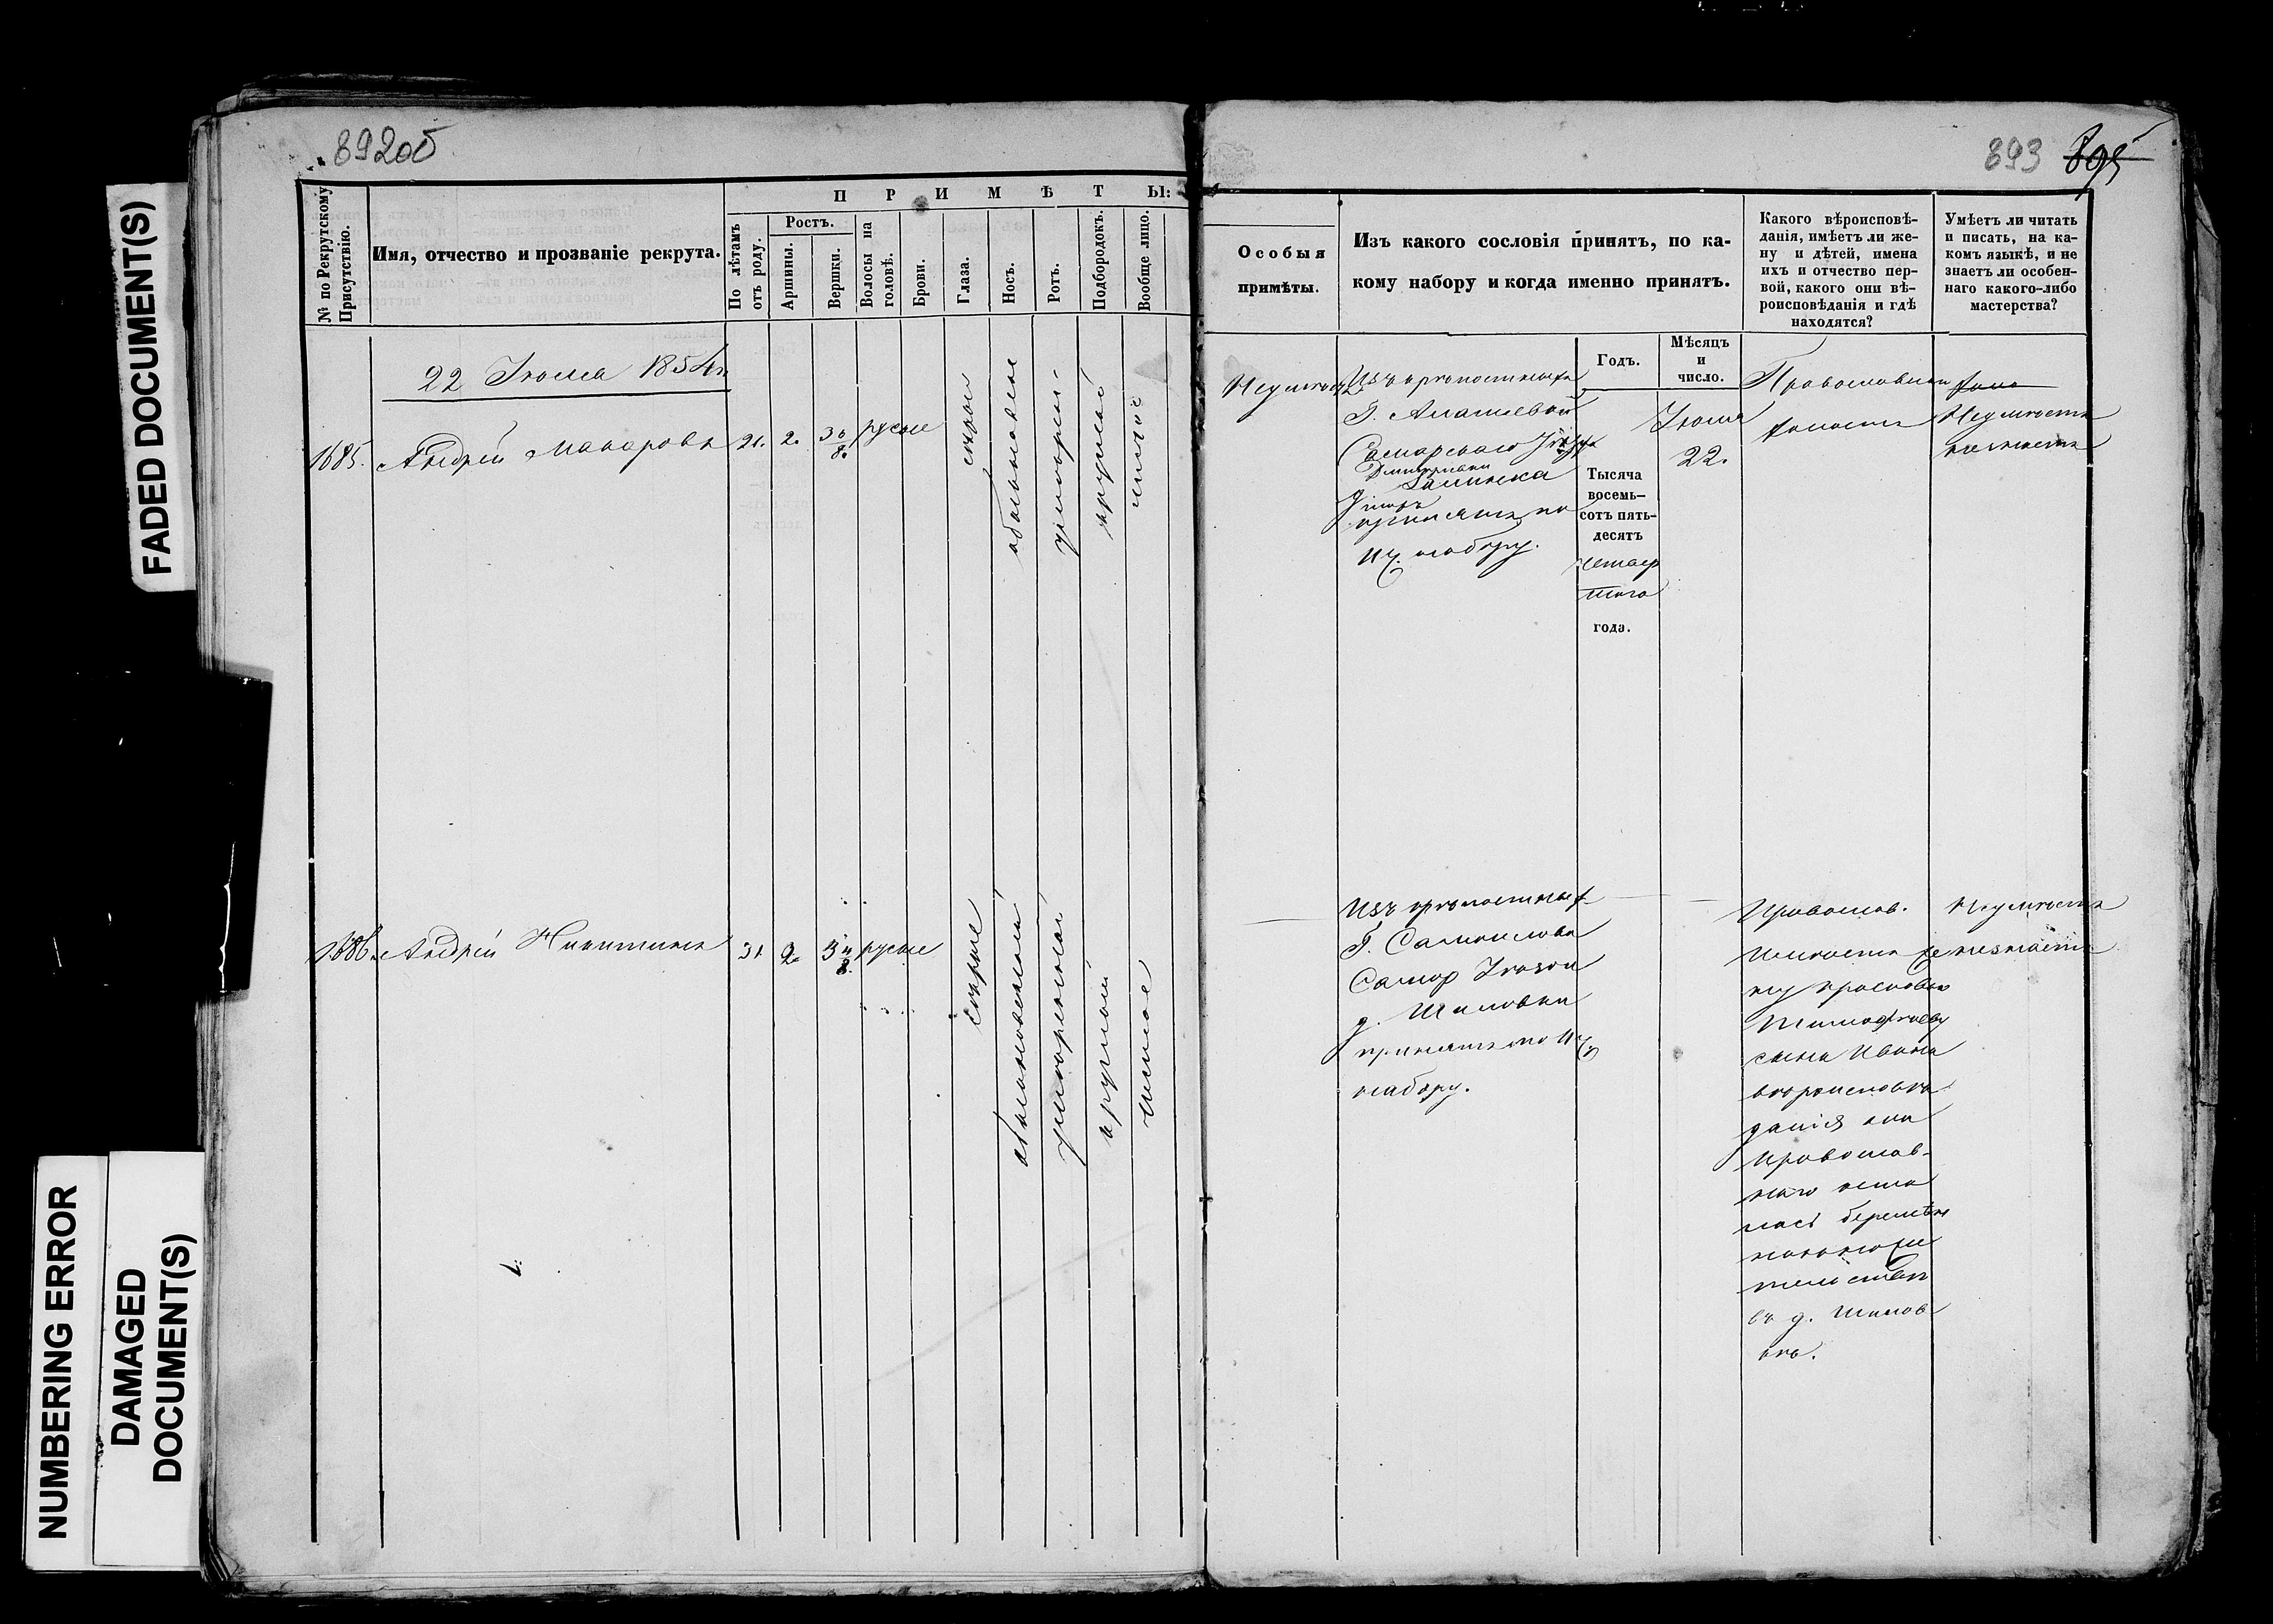 89206
893 895
FADED DOCUMENT(S)
NUMBERING ERROR
DAMAGED
DOCUMENT(S)
№ по Рекрутскому
Присутствію.
Имя, отчество и прозваніе рекрута.
П Р И М Ѣ Т Ы:
По лѣтамъ
отъ роду.
Ростъ.
Аршины.
Вершки.
Волосы на
головѣ.
Брови.
Глаза.
Носъ.
Ротъ.
Подбородокъ.
Вообще лицо.
22 Іюля 1854
1685. Андрей Макаровъ 21. 2. 3 6/8. русые
сѣрые
обыкновен
умѣрен.
круглый
чистое
1686. Андрей Никитинъ 31 2. 3 4/8. русые
сѣрые
обыкновенный
умѣренный
круглый
чистое
Особыя
примѣты.
Изъ какого сословія принятъ, по ка-
кому набору и когда именно принятъ.
Годъ.
Мѣсяцъ
и
число.
Какого вѣроисповѣ-
данія, имѣетъ ли же-
ну и дѣтей, имена
ихъ и отчество пер-
вой, какого они вѣ-
роисповѣданія и гдѣ
находятся?
Умѣетъ ли читать
и писать, на ка-
комъ языкѣ, и не
знаетъ ли особен-
наго какого-либо
мастерства?
Изъ крѣпостныхъ
Г.
Самарскаго Уѣзда
принятъ по
набору.
Тысяча
восемь-
сотъ пять-
десятъ
четвер
таго
года.
Іюля
22.
Православнаго
холостъ
Неумѣетъ
незнаетъ
Изъ крѣпостныхъ
Г. Самойлова
Самар Уѣзда
д. Шиловки
принятъ по
набору.
Православ.
Имѣетъ же
ну Прасковью
Тимофѣеву
сына Ивана
вѣроисповѣ
данія они
Православ-
наго
беремѣн
жи
тельство
въ д. Шилов
кѣ.
Неумѣетъ
незнаетъ